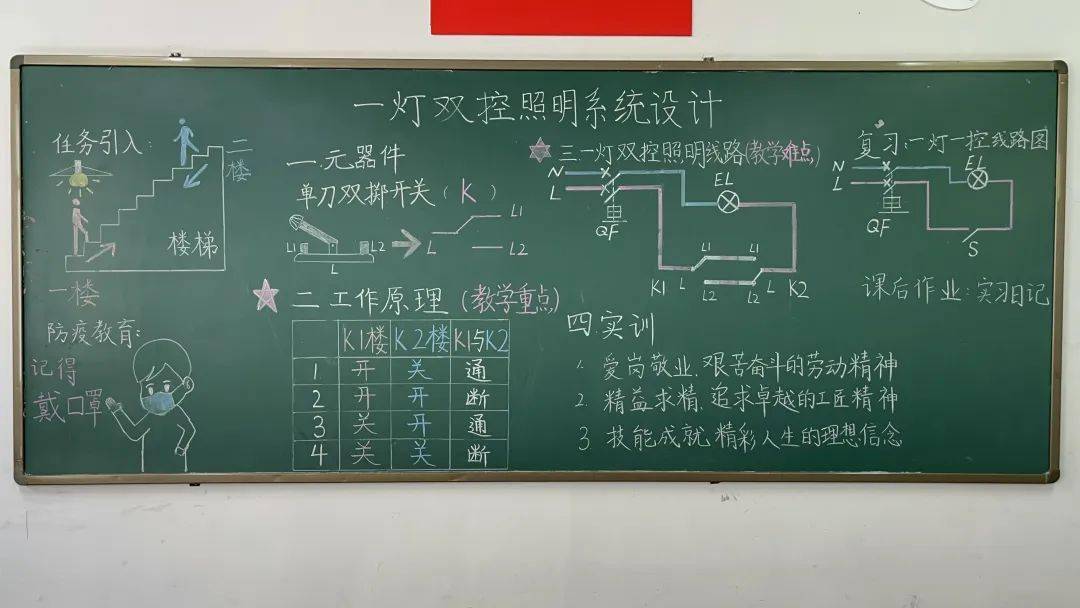 一灯双控照明系统设计
任务引入：
二
楼
楼梯
一楼
防疫教育：
记得
戴口罩
一.元器件
单刀双掷开关（K）
L1
L2
L
L
L1
L2
二 工作原理（教学重点）
K1楼 K2楼 K1与K2
1 开 关 通
2 开 开 断
3 关 开 通
4 关 关 断
三.一灯双控照明线路(教学难点)
N
L
QF
EL
K1 L
L1
L2
L1
L2
L K2
四.实训
1. 爱岗敬业、艰苦奋斗的劳动精神
2. 精益求精、追求卓越的工匠精神
3. 技能成就 精彩人生的理想信念
复习：一灯一控线路图
N
L
QF
EL
S
课后作业：实习日记